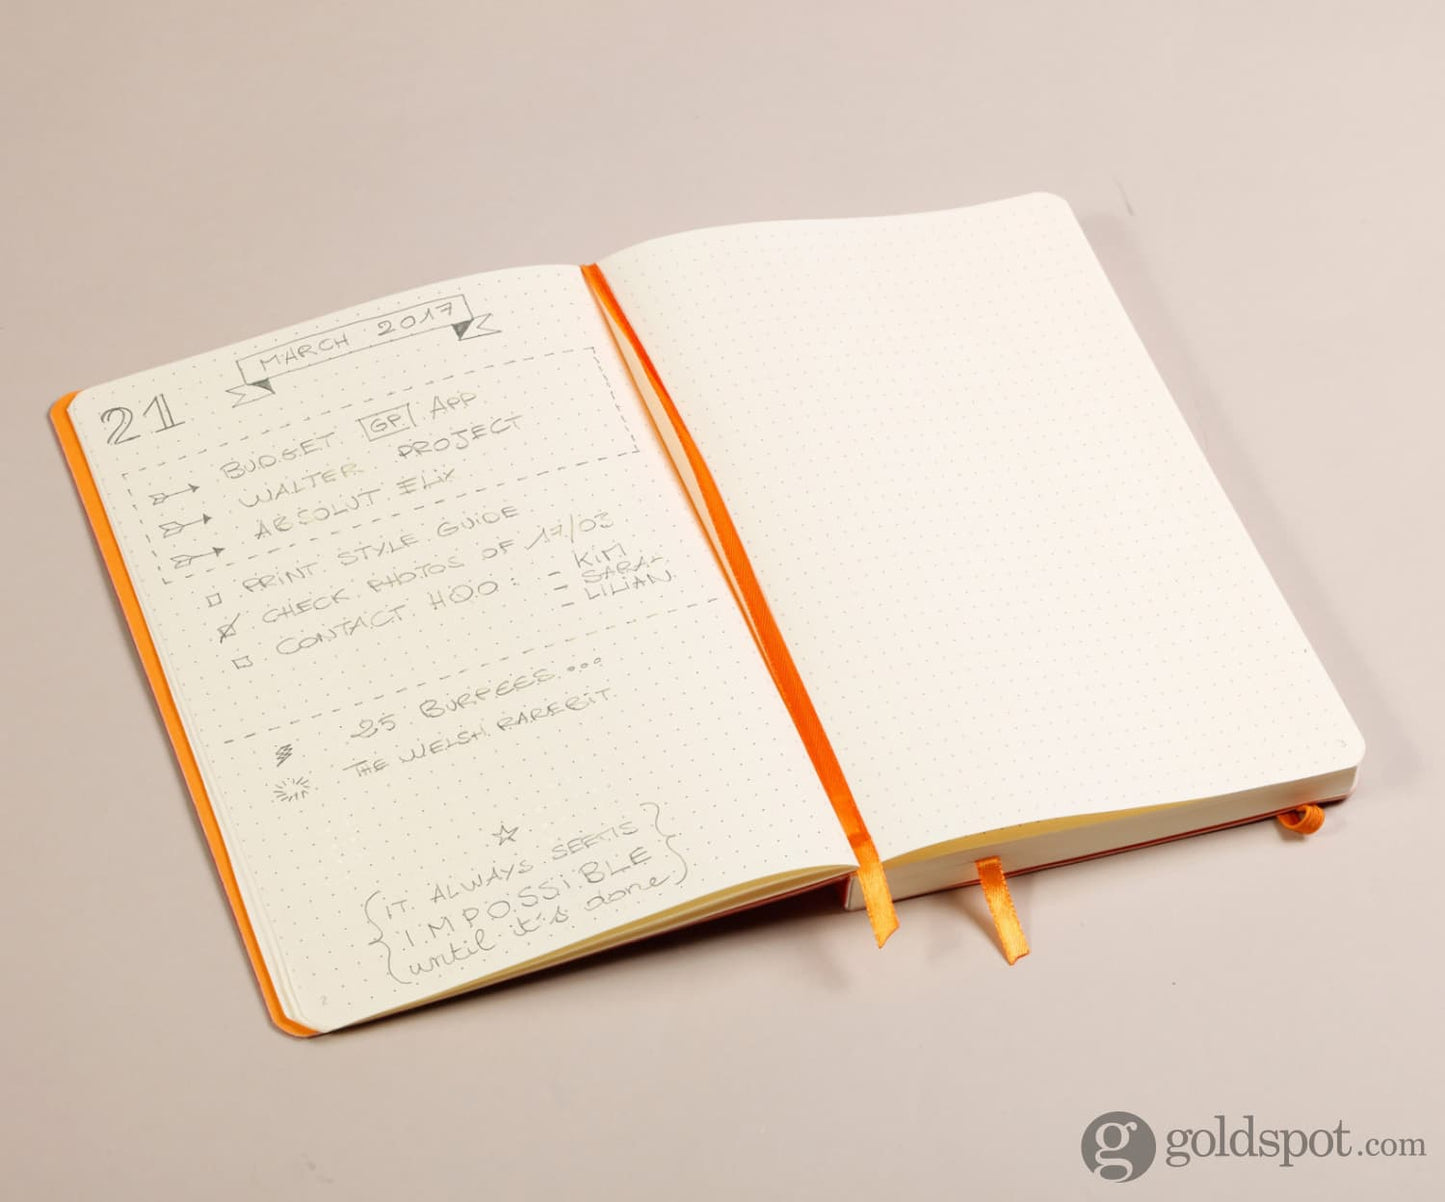 MARCH 2017
21
BUDGET GP APP
WALTER PROJECT
ABSOLUT ELIX
PRINT STYLE GUIDE
CHECK PHOTOS OF 17/03
CONTACT HQO : - KIM
- SARAH
- LILIAN
25 BURPEES...
THE WELSH RAREBIT
IT ALWAYS SEEMS
IMPOSSIBLE
until it's done
2
3
goldspot.com